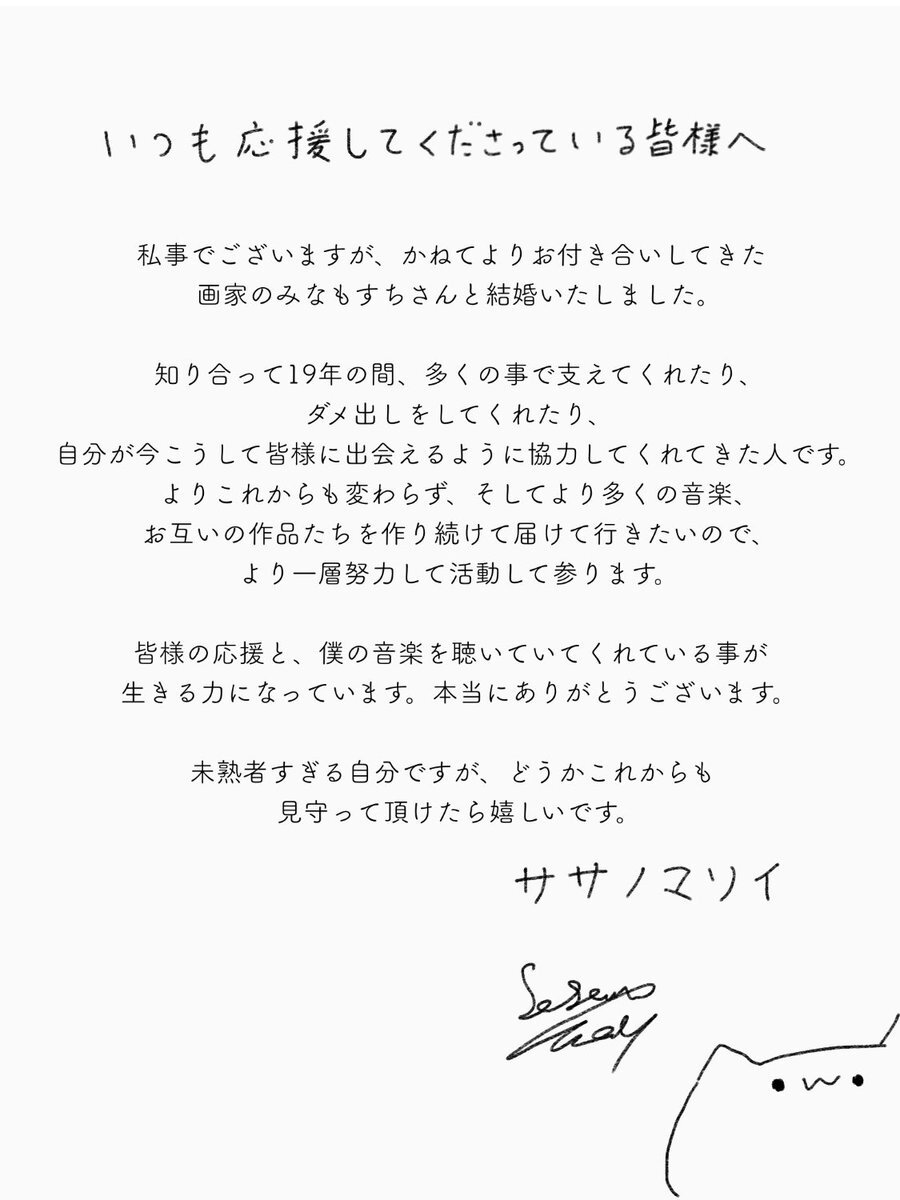 いつも応援してくださっている皆様へ
私事でございますが、かねてよりお付き合いしてきた
画家のみなもすちさんと結婚いたしました。
知り合って19年の間、多くの事で支えてくれたり、
ダメ出しをしてくれたり、
自分が今こうして皆様に出会えるように協力してくれてきた人です。
よりこれからも変わらず、そしてより多くの音楽、
お互いの作品たちを作り続けて届けて行きたいので、
より一層努力して活動して参ります。
皆様の応援と、僕の音楽を聴いていてくれている事が
生きる力になっています。本当にありがとうございます。
未熟者すぎる自分ですが、どうかこれからも
見守って頂けたら嬉しいです。
ササノマソイ